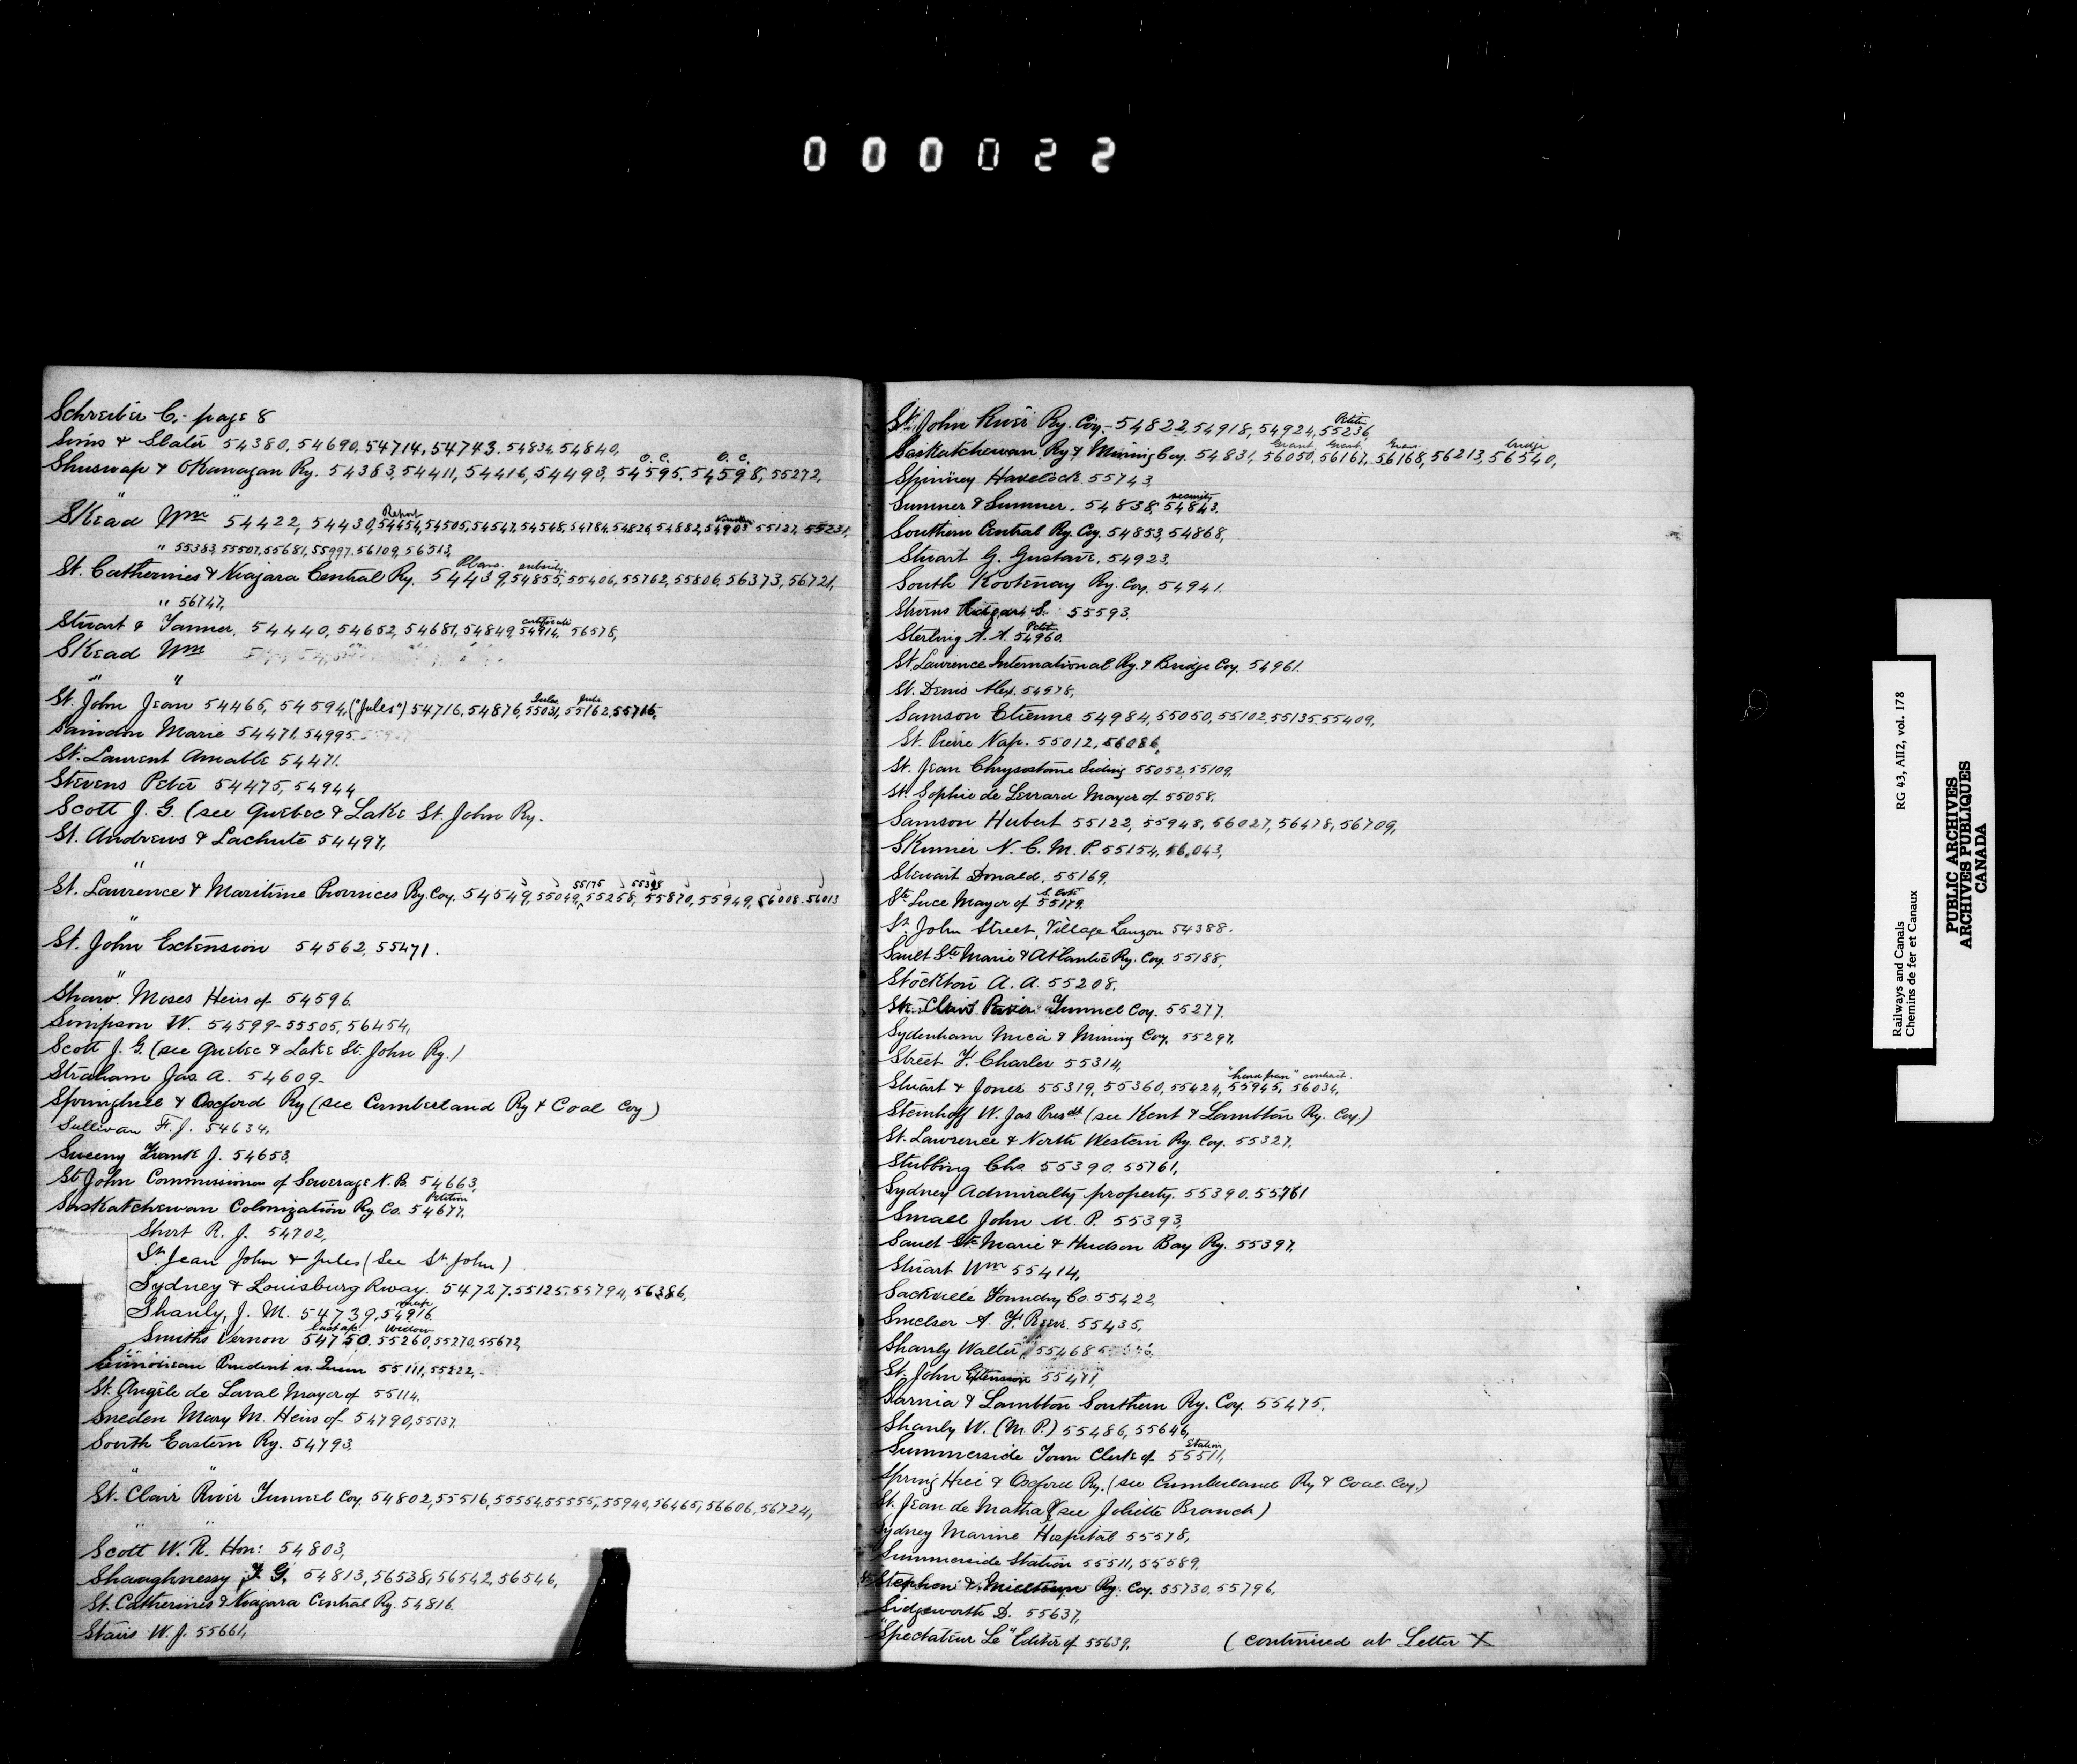 000022
Schreiber C. - page 8
Sims & Slater 54380, 54690, 54714, 54743, 54834, 54840,
O. C. O. C.
Shuswap & OKanagan Ry. 54383, 54411, 54416, 54493, 54595, 54598, 55272,
Report
SKead Wm 54422, 54430, 54454, 54505, 54547, 54548, 54784, 54826, 54882, 54903 55127, 55231,
" 55383, 55507, 55681, 55997, 56109, 56513,
Plans. subsidy.
St. Catherines & Niagara Central Ry. 54439, 54855, 55406, 55762, 55806, 56373, 56721,
" 56747,
certificate
Stuart & Tanner, 54440, 54652, 54681, 54849, 54914, 56578,
SKead Wm
" "
Jules Jules
St. John Jean 54465, 54594, ("Jules") 54716, 54876, 55031, 55162, 55716,
Saindon Marie 54471, 54995
St. Laurent Amable 54471.
Stevens Peter 54475, 54944
Scott J. G. (see Quebec & Lake St. John Ry.
St. Andrews & Lachute 54497,
"
55175 55398
St. Laurence & Maritime Provinces Ry. Coy. 54549, 55049, 55258, 55870, 55949, 56008. 56013
"
St. John Extension 54562, 55471.
"
Shaw. Moses Heirs of 54596.
Simpson W. 54599 - 55505, 56454,
Scott J. G. (see Quebec & Lake St. John Ry.)
Straham Jas A. 54609 -
Springhill & Oxford Ry (see Cumberland Ry & Coal Coy)
Sullivan F. J. 54634,
Sweeny Frank J. 54653.
St John Commissioners of Sewerage N. B. 54663,
Petition
Saskatchewan Colonization Ry Co. 54677,
Short R. J. 54702,
St. Jean John & Jules (See St. John)
Sydney & Louisburg Rway. 54727, 55125, 55794, 56386,
Shanly, J. M. 54739, 54916
Widow
Smith's Vernon 54750, 55260, 55270, 55672,
Prudent vs. Queen 55111, 55222, -
St. Angèle de Laval Mayor of 55114,
Sneden Mary M. Heirs of 54790, 55137,
South Eastern Ry. 54793.
" "
St. Clair River Tunnel Coy. 54802, 55516, 55554, 55555, 55940, 56465, 56606, 56724,
Scott W. R. Hon: 54803,
Shaughnessy T. G. 54813, 56538, 56542, 56546,
St. Catherines & Niagara Central Ry. 54816.
Stairs W. J. 55661,
Petition
St. John River Ry. Coy. - 54822, 54918, 54924, 55236,
Grant Grant. Grant bridge
Saskatchewan Ry & Mining Coy. 54831, 56050, 56167, 56168, 56213, 56540,
Spinney Havelock 55743.
security
Sumner & Sumner. 54838, 54843.
Southern Central Ry. Coy. 54853, 54868,
Stuart G. Gustave. 54923.
South Kootenay Ry. Coy. 54941.
Stevens S. 55593.
Sterling A. A. 54960.
St. Lawrence International Ry. & Bridge Coy. 54961.
St. Denis Alex. 54978,
Samson Etienne 54984, 55050, 55102, 55135, 55409,
St. Pierre Nap. 55012, 56086,
St. Jean Chrysostome Siding 55052, 55109,
St. Sophie de Mayor of 55058,
Samson Hubert 55122, 55948, 56027, 56478, 56709,
SKinner N. C. M. P. 55154, 56,043,
Stewart Donald. 55169,
Ste Luce Mayor of 55179.
St. John Street, Village Lauzon 54388.
Sault Ste Marie & Atlantic Ry. Coy. 55188,
Stockton A. A. 55208.
St. Clair River Tunnel Coy. 55277.
Sydenham Mica & Mining Coy. 55297.
Street F. Charles 55314,
"hard pan" contract.
Stuart & Jones 55319, 55360, 55424, 55945, 56034,
Steinhoff W. Jas Presdt (see Kent & Lambton Ry. Coy)
St. Lawrence & North Western Ry. Coy. 55327.
Stubbing Chs. 55390. 55761,
Sydney Admiralty property. 55390. 55761
Small John M. P. 55393,
Sault Ste Marie & Hudson Bay Ry. 55397.
Stuart Wm 55414,
Sackville Foundry Co. 55422,
Smelser A. F. 55435,
Shanly Walter, 55468
St. John Extension 55471,
Sarnia & Lambton Southern Ry. Coy. 55475.
Shanly W. (M. P.) 55486, 55646,
Station
Summerside Town Clerk of 55511,
Spring Hill & Oxford Ry. (see Cumberland Ry & Coal Coy.)
St. Jean de Matha (see Joliette Branch)
Sydney Marine Hospital 55578,
Summerside Station 55511, 55589,
St Stephen & Milltown Ry. Coy. 55730, 55796,
Sidgworth D. 55637,
"Spectateur Le" Editor of 55639. (continued at Letter X
Railways and Canals RG 43, AII2, vol. 178
Chemins de fer et Canaux
PUBLIC ARCHIVES
ARCHIVES PUBLIQUES
CANADA